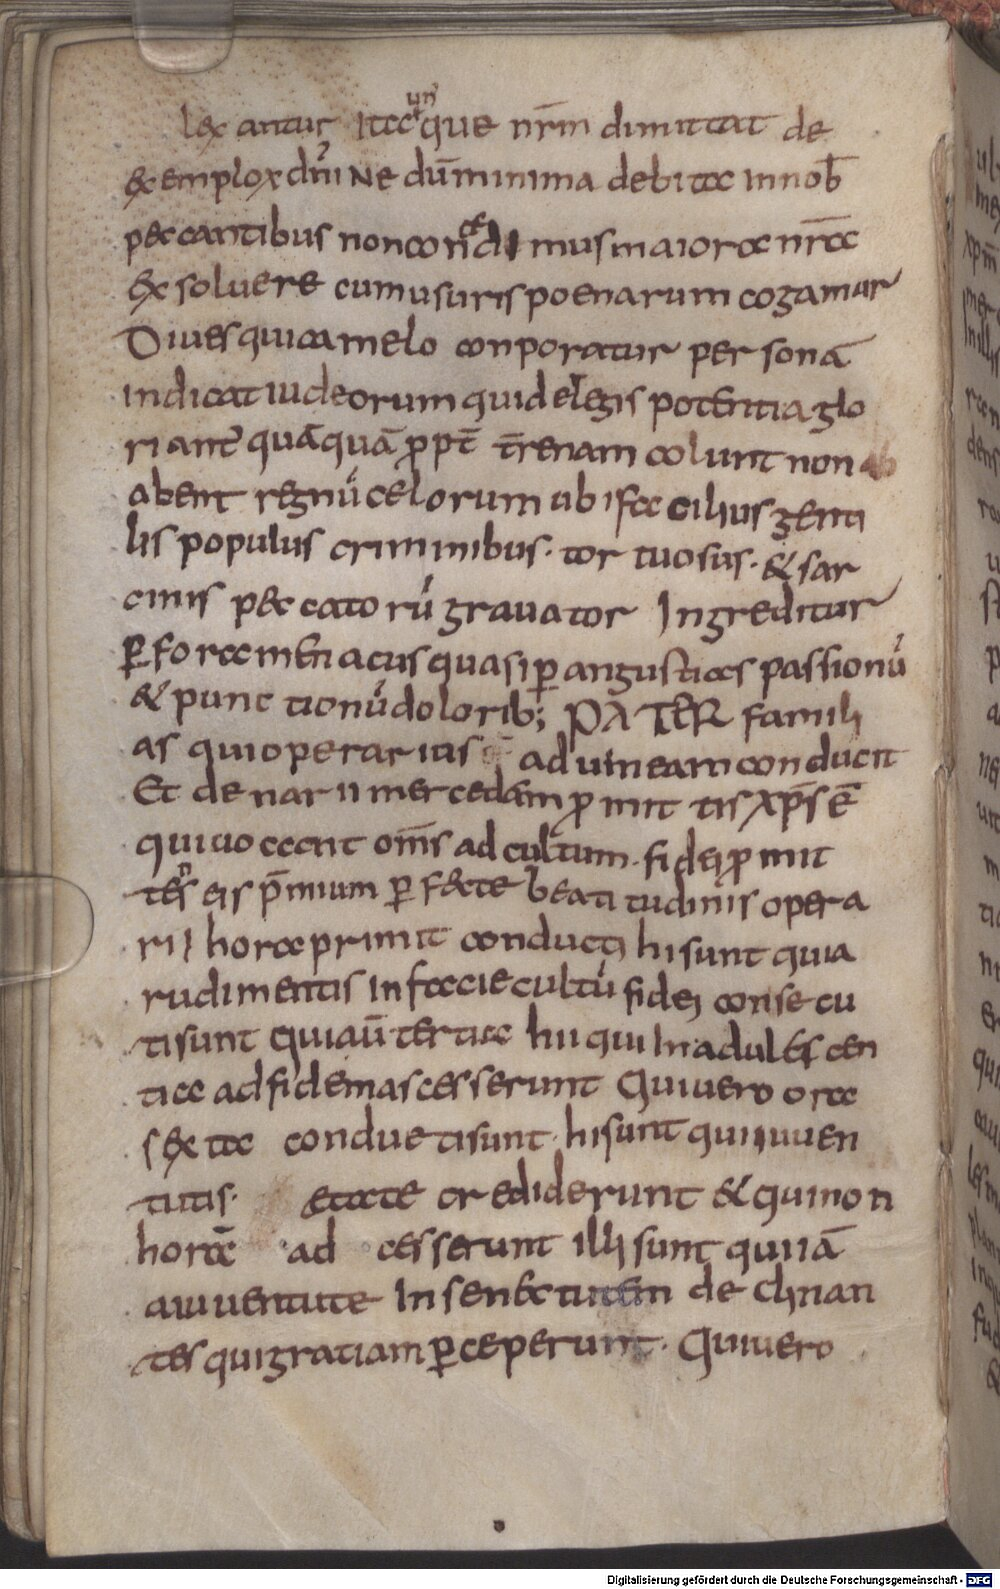 lexantur Ita un que nr̄m dimittat de
exemplo xdn̄i Ne dūminima debita innob̄
peccantibus noncondi mus maiora nr̄a
exsoluere cumusuris poenarum cogamur
Diues quicamelo conporatur personā
indicat iudeorum quidelegis potentia glo
riant̄ quāquā ꝓpt̄ t̄renam colunt non
abent regnū celorum ubi facilius genti
lis populus criminibus· tortuosus· & sar
cinis peccatorū grauator Ingreditur
ꝑforamen acus quasi ꝑ angustias passionū
& punctionū dolorib; PATER famili
as qui operarius ad uineam conducit
Et denarii mercedam ꝓmittis xp̄s ē
quiuocauit om̄s ad cultum· fidei ꝓmit
tens eis p̄mium ꝑfecte beatitudinis opera
rii hora primit conducti hi sunt qui a
rudimentis infaciecultū fidei consecu
ti sunt Qui aū tertia hii qui In adulescen
tia ad fidem ascesserunt Qui uero ora
sexta conduc ti sunt· hi sunt qui iuuen
tutis· etate crediderunt & qui non
horā ad cesserunt illi sunt qui iā
a iuuentute In senectutem declinan
tes qui gratiam ꝑceperunt· Qui uero
Digitalisierung gefördert durch die Deutsche Forschungsgemeinschaft - DFG